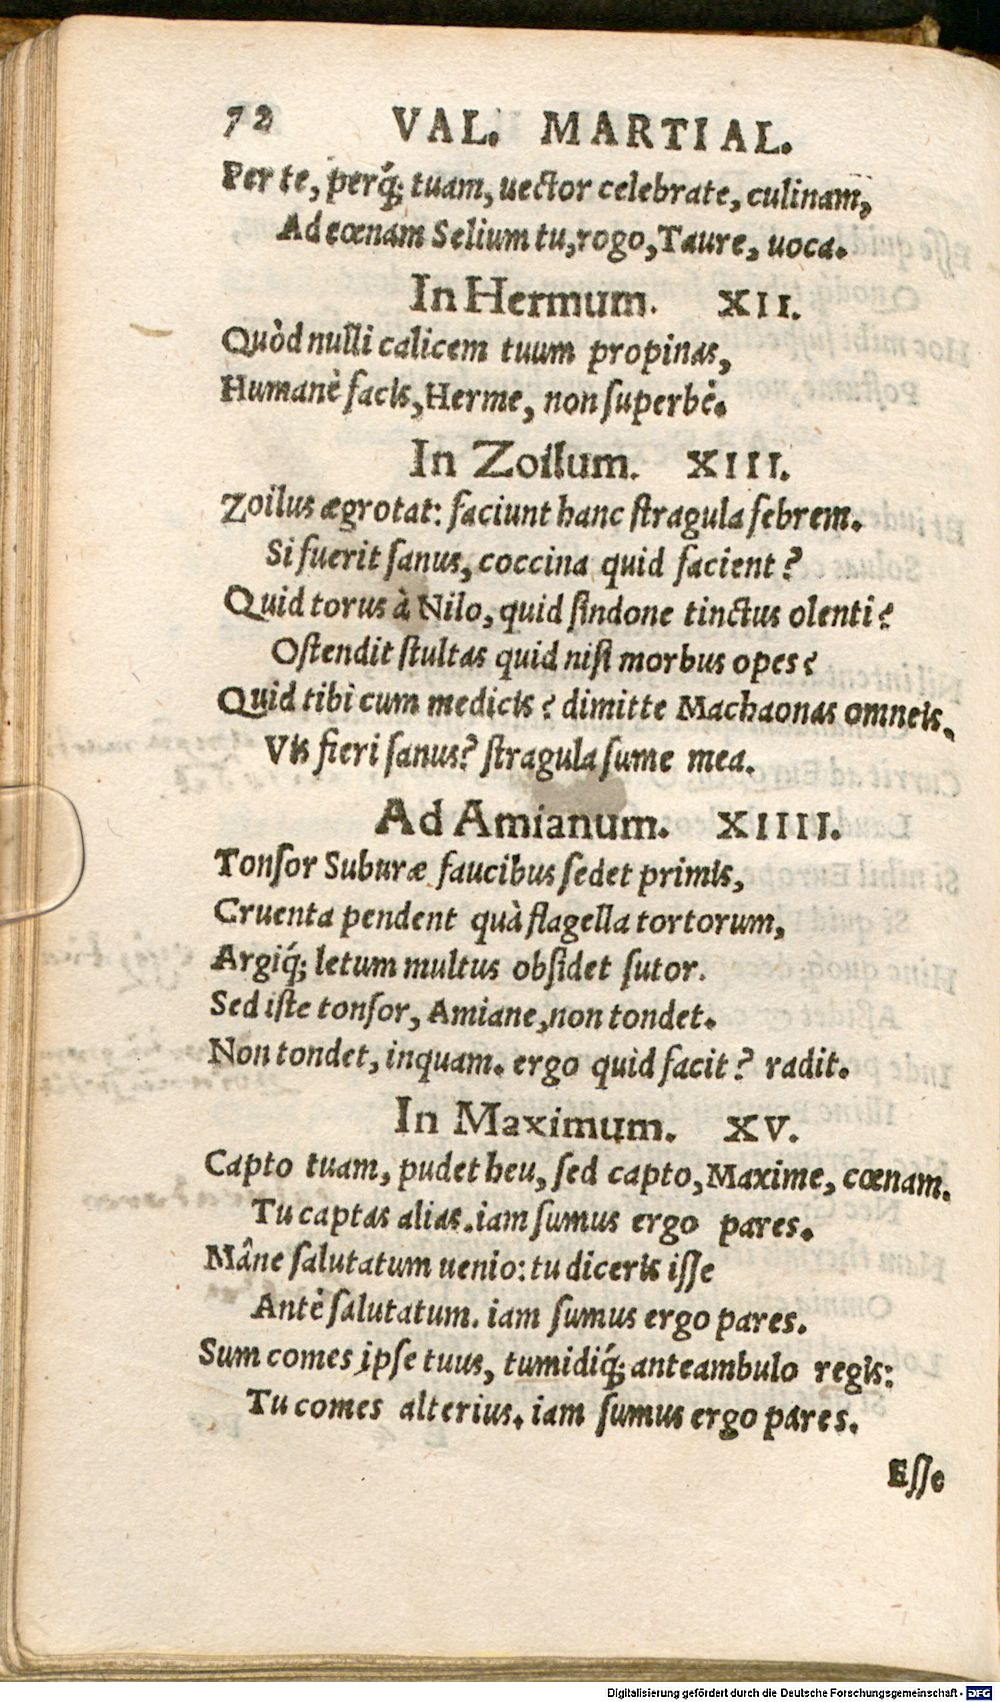 72 VAL. MARTIAL.
Per te, perq́; tuam, uector celebrate, culinam,
Ad cœnam Selium tu, rogo, Taure, uoca.
In Hermum. XII.
Quòd nulli calicem tuum propinas,
Humanè facis, Herme, non superbè.
In Zoilum. XIII.
Zoilus ægrotat: faciunt hanc stragula febrem.
Si fuerit sanus, coccina quid facient?
Quid torus à Nilo, quid sindone tinctus olenti?
Ostendit stultas quid nisi morbus opes?
Quid tibi cum medicis? dimitte Machaonas omneis.
Vis fieri sanus? stragula sume mea.
Ad Amianum. XIIII.
Tonsor Suburæ faucibus sedet primis,
Cruenta pendent quà flagella tortorum,
Argiq́; letum multus obsidet sutor.
Sed iste tonsor, Amiane, non tondet.
Non tondet, inquam. ergo quid facit? radit.
In Maximum. XV.
Capto tuam, pudet heu, sed capto, Maxime, cœnam.
Tu captas alias. iam sumus ergo pares.
Mâne salutatum uenio: tu diceris isse
Antè salutatum. iam sumus ergo pares.
Sum comes ipse tuus, tumidiq́; anteambulo regis:
Tu comes alterius. iam sumus ergo pares.
Esse
Digitalisierung gefördert durch die Deutsche Forschungsgemeinschaft - DFG